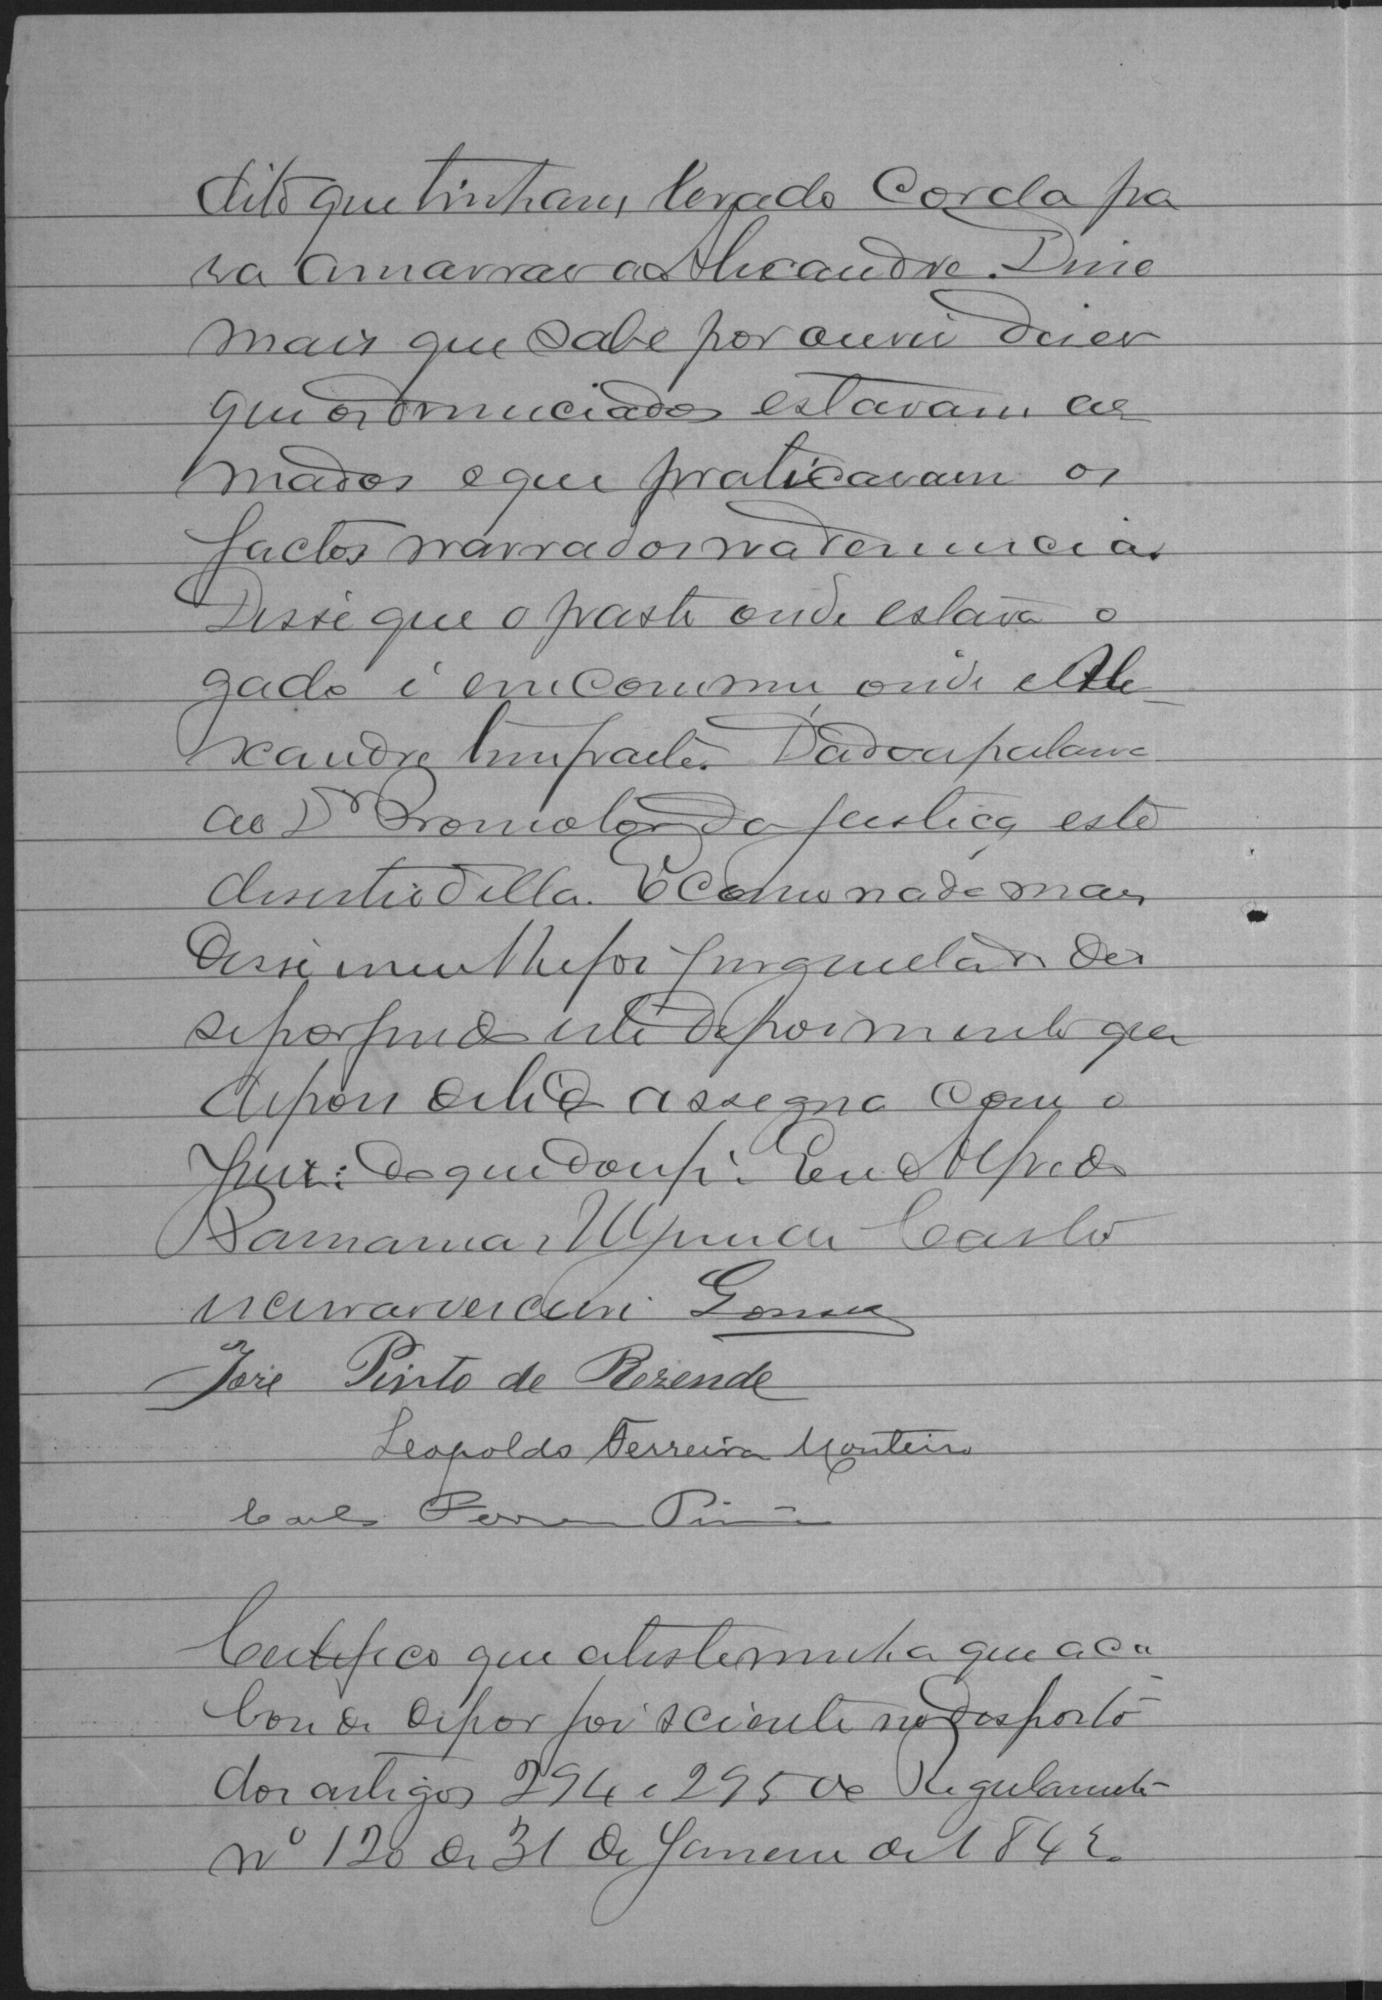 dito que tinham levado corda pa
ra amarrar ao Alexandre. Disse
mais que sabe por ouvir dizer
que os denunciados estavam ar
mados e que praticavam os
factos narrados na denuncia.
Disse que o pasto onde estava o
gado é em commum, onde Ale-
xandre tem parte. Dado a palavra
ao Dr Promotor da Justiça este
desistio della. E como nada mais
disse nem lhe foi perguntado deu
se por findo este depoimento que
depois de lido assigna com o
Juiz: do que dou fé. Eu Alfredo
de Castro
escrevi
José Pinto de Rezende
Leopoldo Ferreira Monteiro
Certifico que a testemunha que aca
bou de depor foi sciente no disposto
dos artigos 294 e 295 do Regulamento
nº 120 de 31 de Janeiro de 1842.